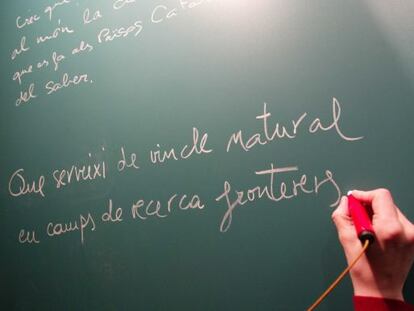 Crec que
al món la
que es fa als Països Catal
del saber.
Que serveixi de vincle natural
en camps de recerca fronterers